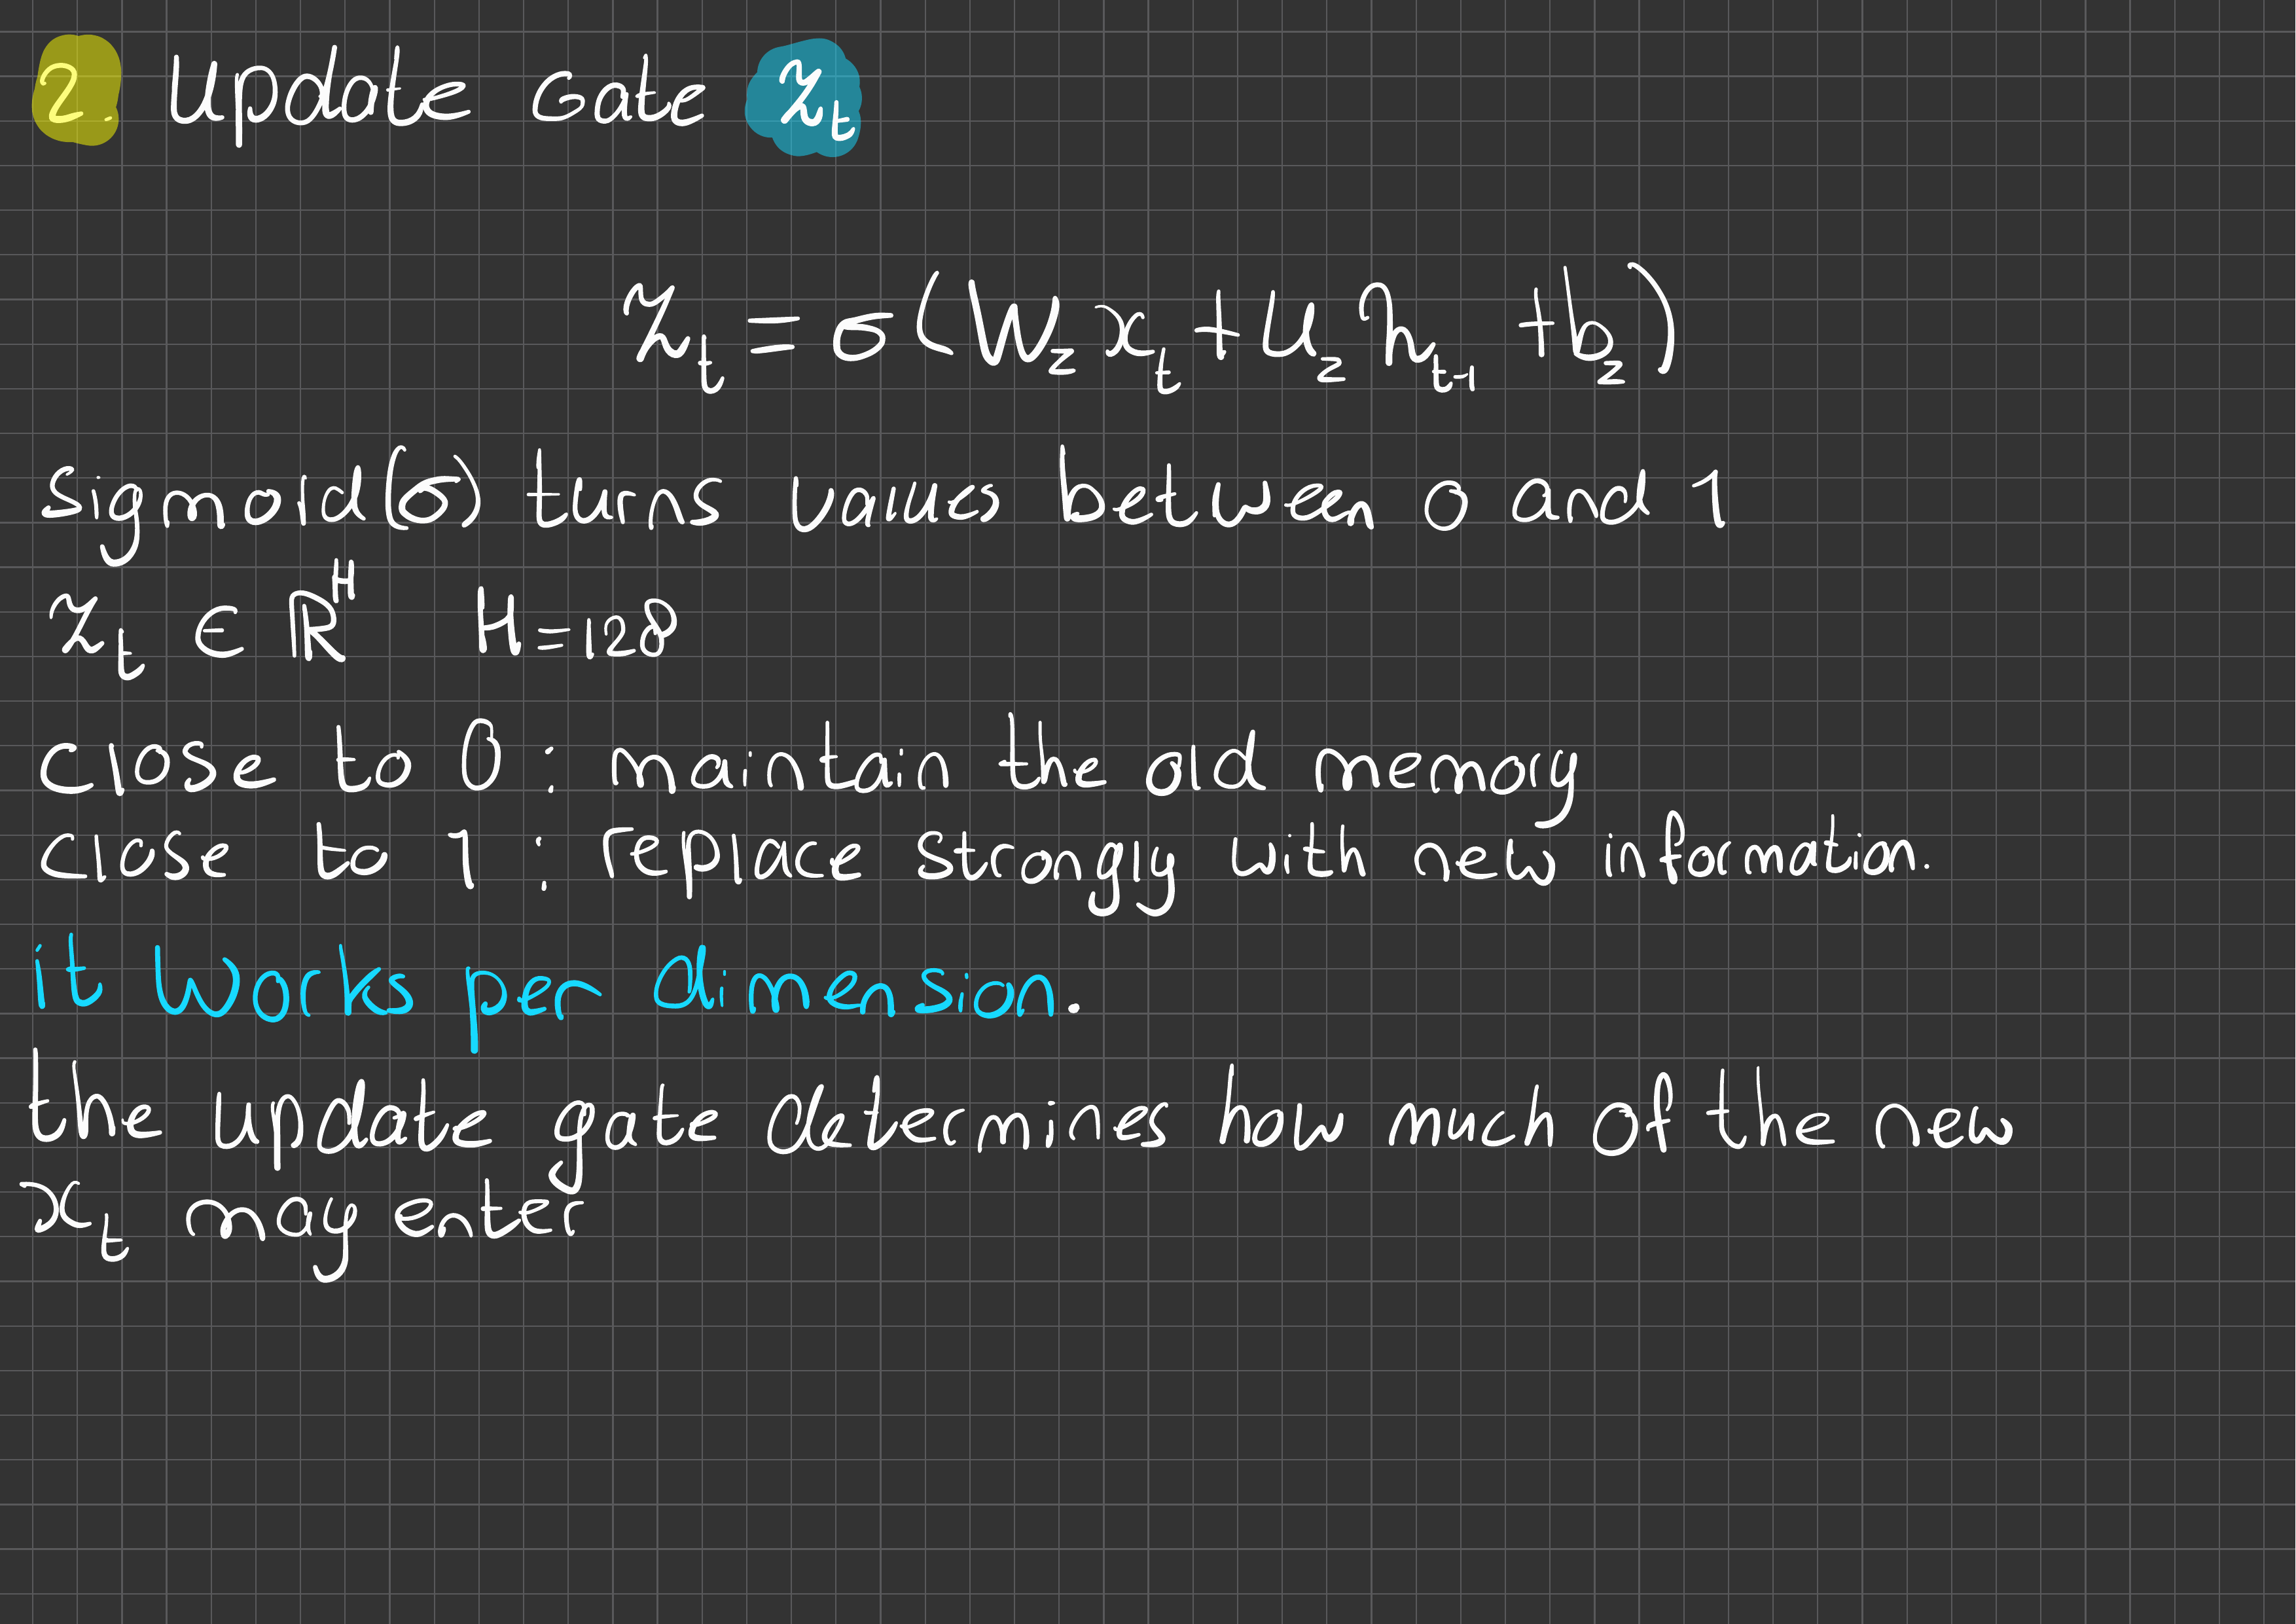 2. Update Gate z_t
z_t = σ(W_z x_t + U_z h_{t-1} + b_z)
Sigmoid(σ) turns values between 0 and 1
z_t ∈ ℝ^H H=128
close to 0 : maintain the old memory
close to 1 : replace strongly with new information.
it works per dimension.
the update gate determines how much of the new
x_t may enter